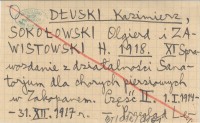 DŁUSKI Kazimierz,
SOKOŁOWSKI Olgierd i ZA-
WISTOWSKI H. 1918. XI Spra-
wozdanie z działalności Sana-
torjum dla chorych piersiowych
w Zakopanem. Część II. 1.I.1914
- 31.XII.1917 r.